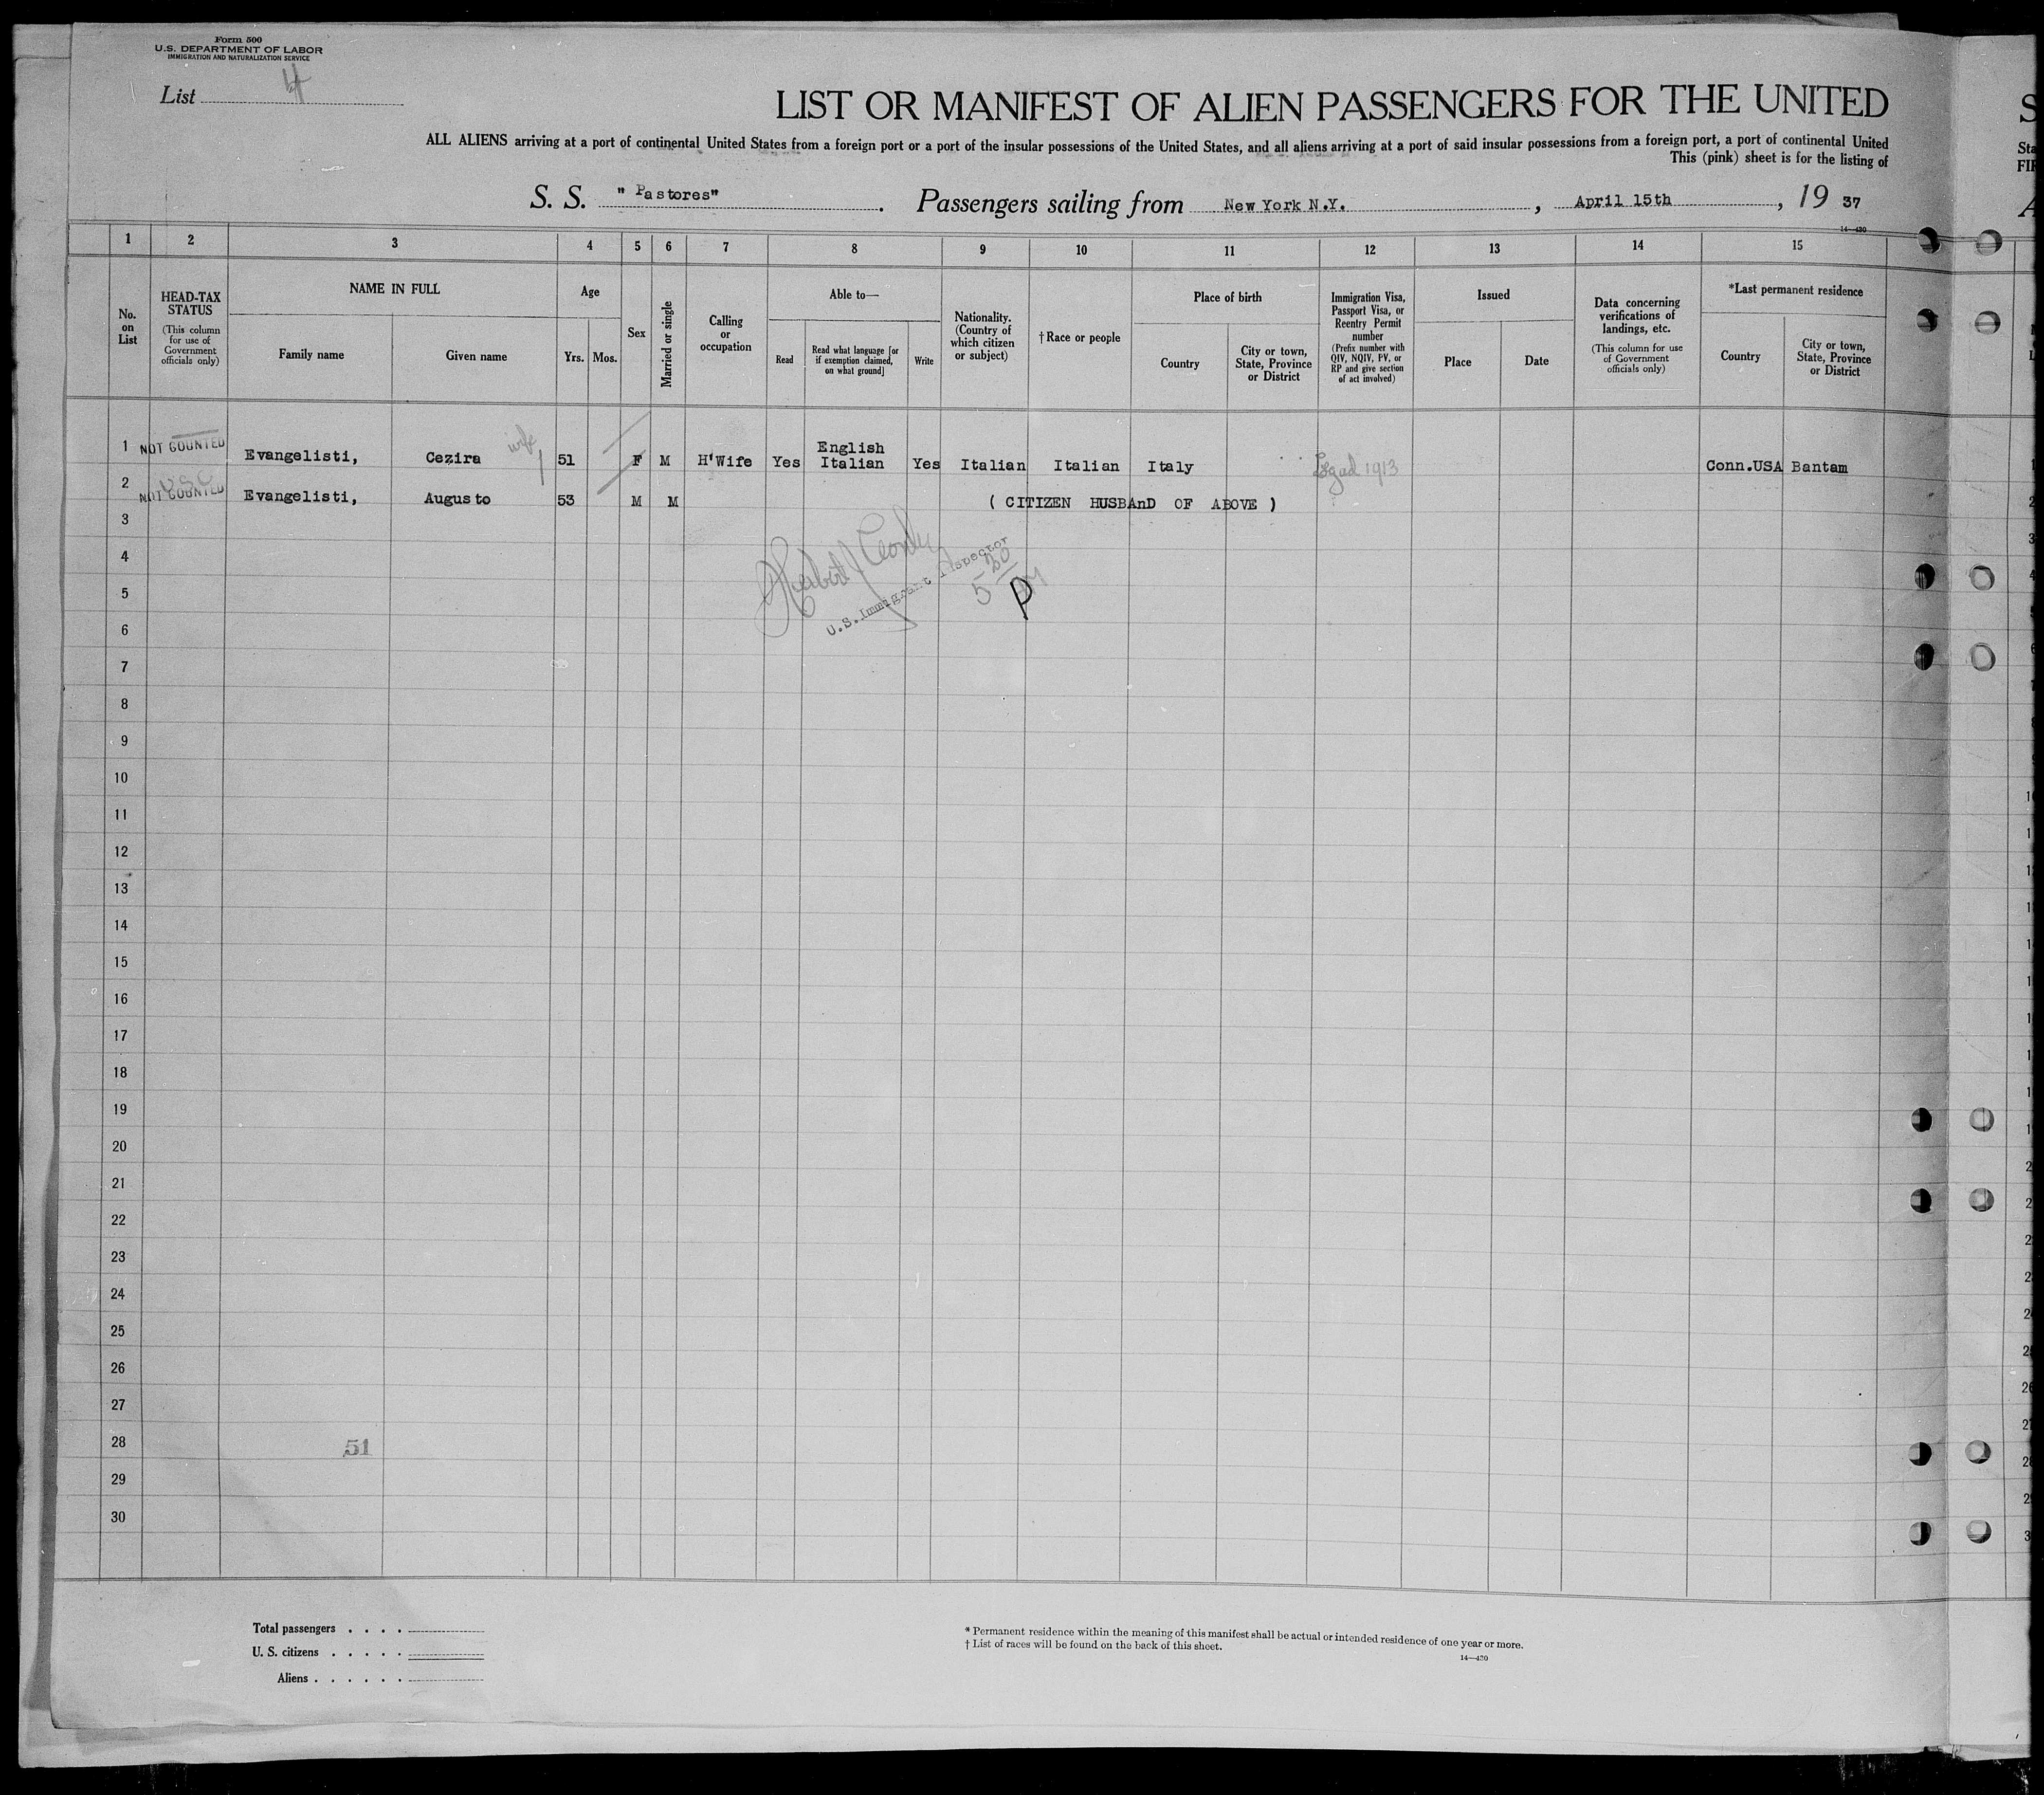 Form 500
U.S. DEPARTMENT OF LABOR
IMMIGRATION AND NATURALIZATION SERVICE
List 4
LIST OR MANIFEST OF ALIEN PASSENGERS FOR THE UNITED
ALL ALIENS arriving at a port of continental United States from a foreign port or a port of the insular possessions of the United States, and all aliens arriving at a port of said insular possessions from a foreign port, a port of continental United
This (pink) sheet is for the listing of
S. S. "Pastores". Passengers sailing from New York N.Y., April 15th, 19 37
14—430
1 2 3 4 5 6 7 8 9 10 11 12 13 14 15
No. on List
HEAD-TAX STATUS
(This column for use of Government officials only)
NAME IN FULL
Family name
Given name
Age
Yrs.
Mos.
Sex
Married or single
Calling or occupation
Able to—
Read
Read what language [or if exemption claimed, on what ground]
Write
Nationality. (Country of which citizen or subject)
†Race or people
Place of birth
Country
City or town, State, Province or District
Immigration Visa, Passport Visa, or Reentry Permit number
(Prefix number with QIV, NQIV, PV, or RP and give section of act involved)
Issued
Place
Date
Data concerning verifications of landings, etc.
(This column for use of Government officials only)
*Last permanent residence
Country
City or town, State, Province or District
1 NOT COUNTED Evangelisti, Cezira wife 51 F M H'Wife Yes English Italian Yes Italian Italian Italy 1913 Conn.USA Bantam
2 USC NOT COUNTED Evangelisti, Augusto 53 M M ( CITIZEN HUSBAnD OF ABOVE )
3
U.S. Immigrant Inspector
4
5
6
7
8
9
10
11
12
13
14
15
16
17
18
19
20
21
22
23
24
25
26
27
28 51
29
30
Total passengers . . . .
U. S. citizens . . . . .
Aliens . . . . . .
* Permanent residence within the meaning of this manifest shall be actual or intended residence of one year or more.
† List of races will be found on the back of this sheet.
14—430